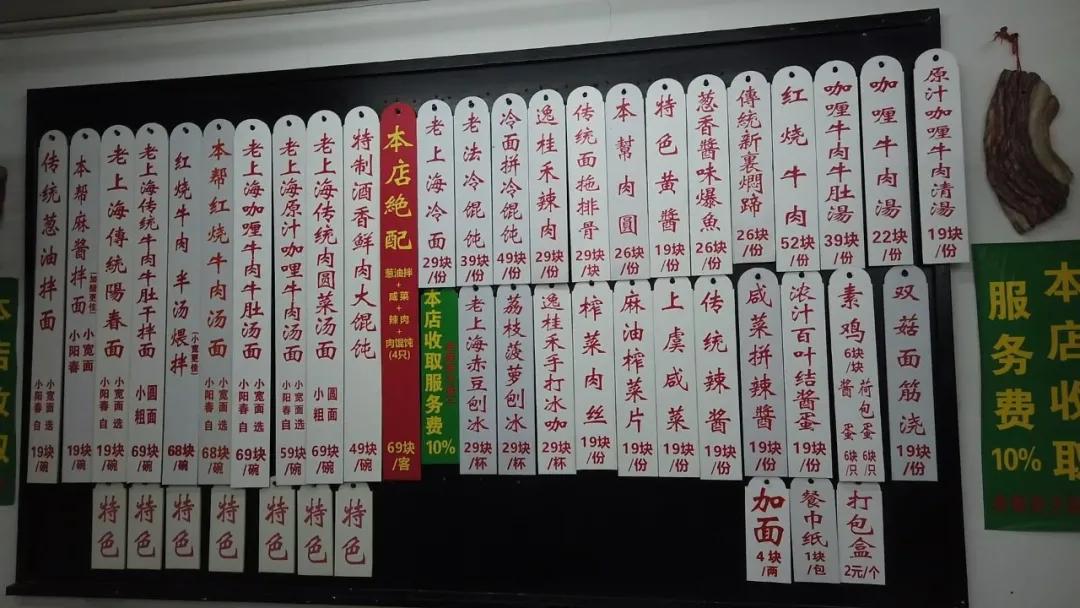 传统葱油拌面 小阳春 小宽面自选 19块/碗
本帮麻酱拌面 小阳春 小宽面 19块/碗
老上海傳統陽春面 小阳春 小宽面自选 19块/碗
老上海传统牛肉牛肚干拌面 小粗 圆面 69块/碗
红烧牛肉 半汤煨拌 (小宽更佳) 68块/碗
本帮红烧牛肉汤面 小阳春 小宽面自选 68块/碗
老上海咖喱牛肉牛肚汤面 小阳春 小宽面自选 69块/碗
老上海原汁咖喱牛肉汤面 小阳春 小宽面自选 59块/碗
老上海传统肉圆菜汤面 小粗 圆面 69块/碗
特制酒香鲜肉大馄饨 49块/碗
本店絶配 葱油拌+咸菜+辣肉+肉馄饨(4只) 69块/客
老上海冷面 29块/份
老法冷馄饨 39块/份
冷面拼冷馄饨 49块/份
逸桂禾辣肉 29块/份
传统面拖排骨 29块/块
本幫肉圓 26块/份
特色黄醬 19块/份
葱香醬味爆魚 26块/份
傳統新裏燜蹄 26块/份
红烧牛肉 52块/份
咖喱牛肉牛肚湯 39块/份
咖喱牛肉湯 22块/份
原汁咖喱牛肉清湯 19块/份
本店收取服务费10%
老上海赤豆刨冰 29块/杯
荔枝菠萝刨冰 29块/杯
逸桂禾手打冰咖 29块/杯
榨菜肉丝 19块/份
麻油榨菜片 19块/份
上虞咸菜 19块/份
传统辣酱 19块/份
咸菜拼辣醬 19块/份
浓汁百叶结醬蛋 19块/份
素鸡 6块/块 醬蛋 6块/只 荷包蛋 6块/只
双菇面筋浇 19块/份
特色
特色
特色
特色
特色
特色
特色
加面 4块/两
餐巾纸 1块/包
打包盒 2元/个
本店收取
服务费
10%
本店收取